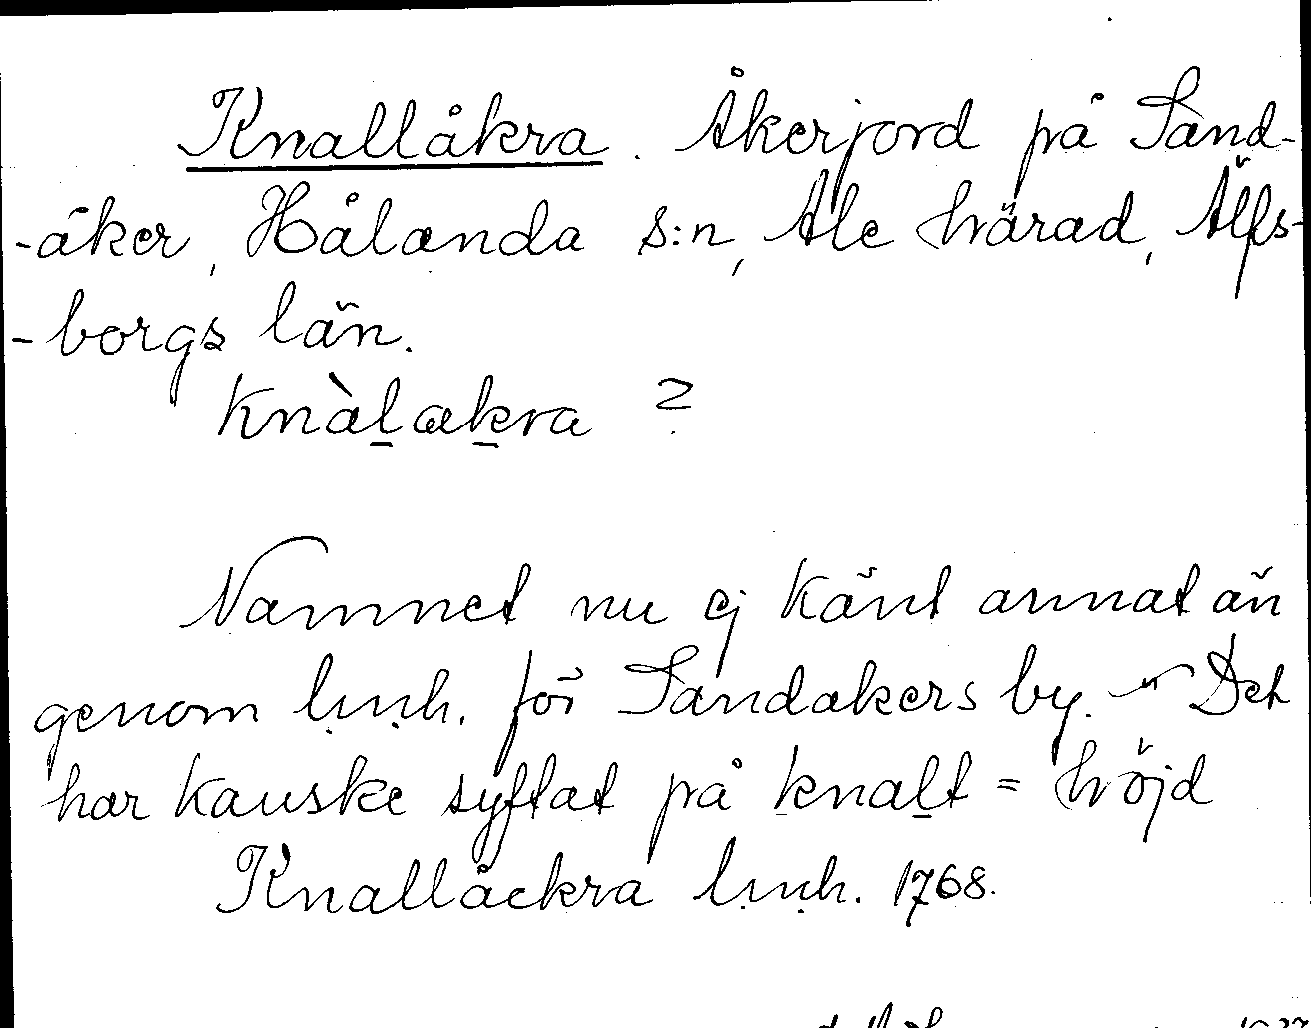 Knallåkra. Åkerjord på Sand-
-åker, Hålanda s:n, Ale härad, Älfs-
-borgs län.
Knàl̠ak̠ra 2
Namnet nu ej känt annat än
genom l.u.h. för Sandakers by. – Det
har kanske syftat på knal̠t = höjd
Knallåckra l.u.h. 1768.